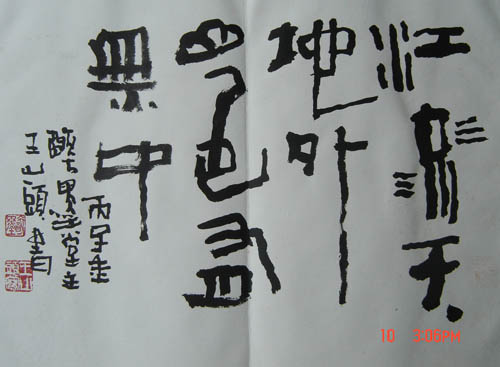 江流天
地外
山色有
無中
丙子年
堂主
王山頭書
10 3:05PM